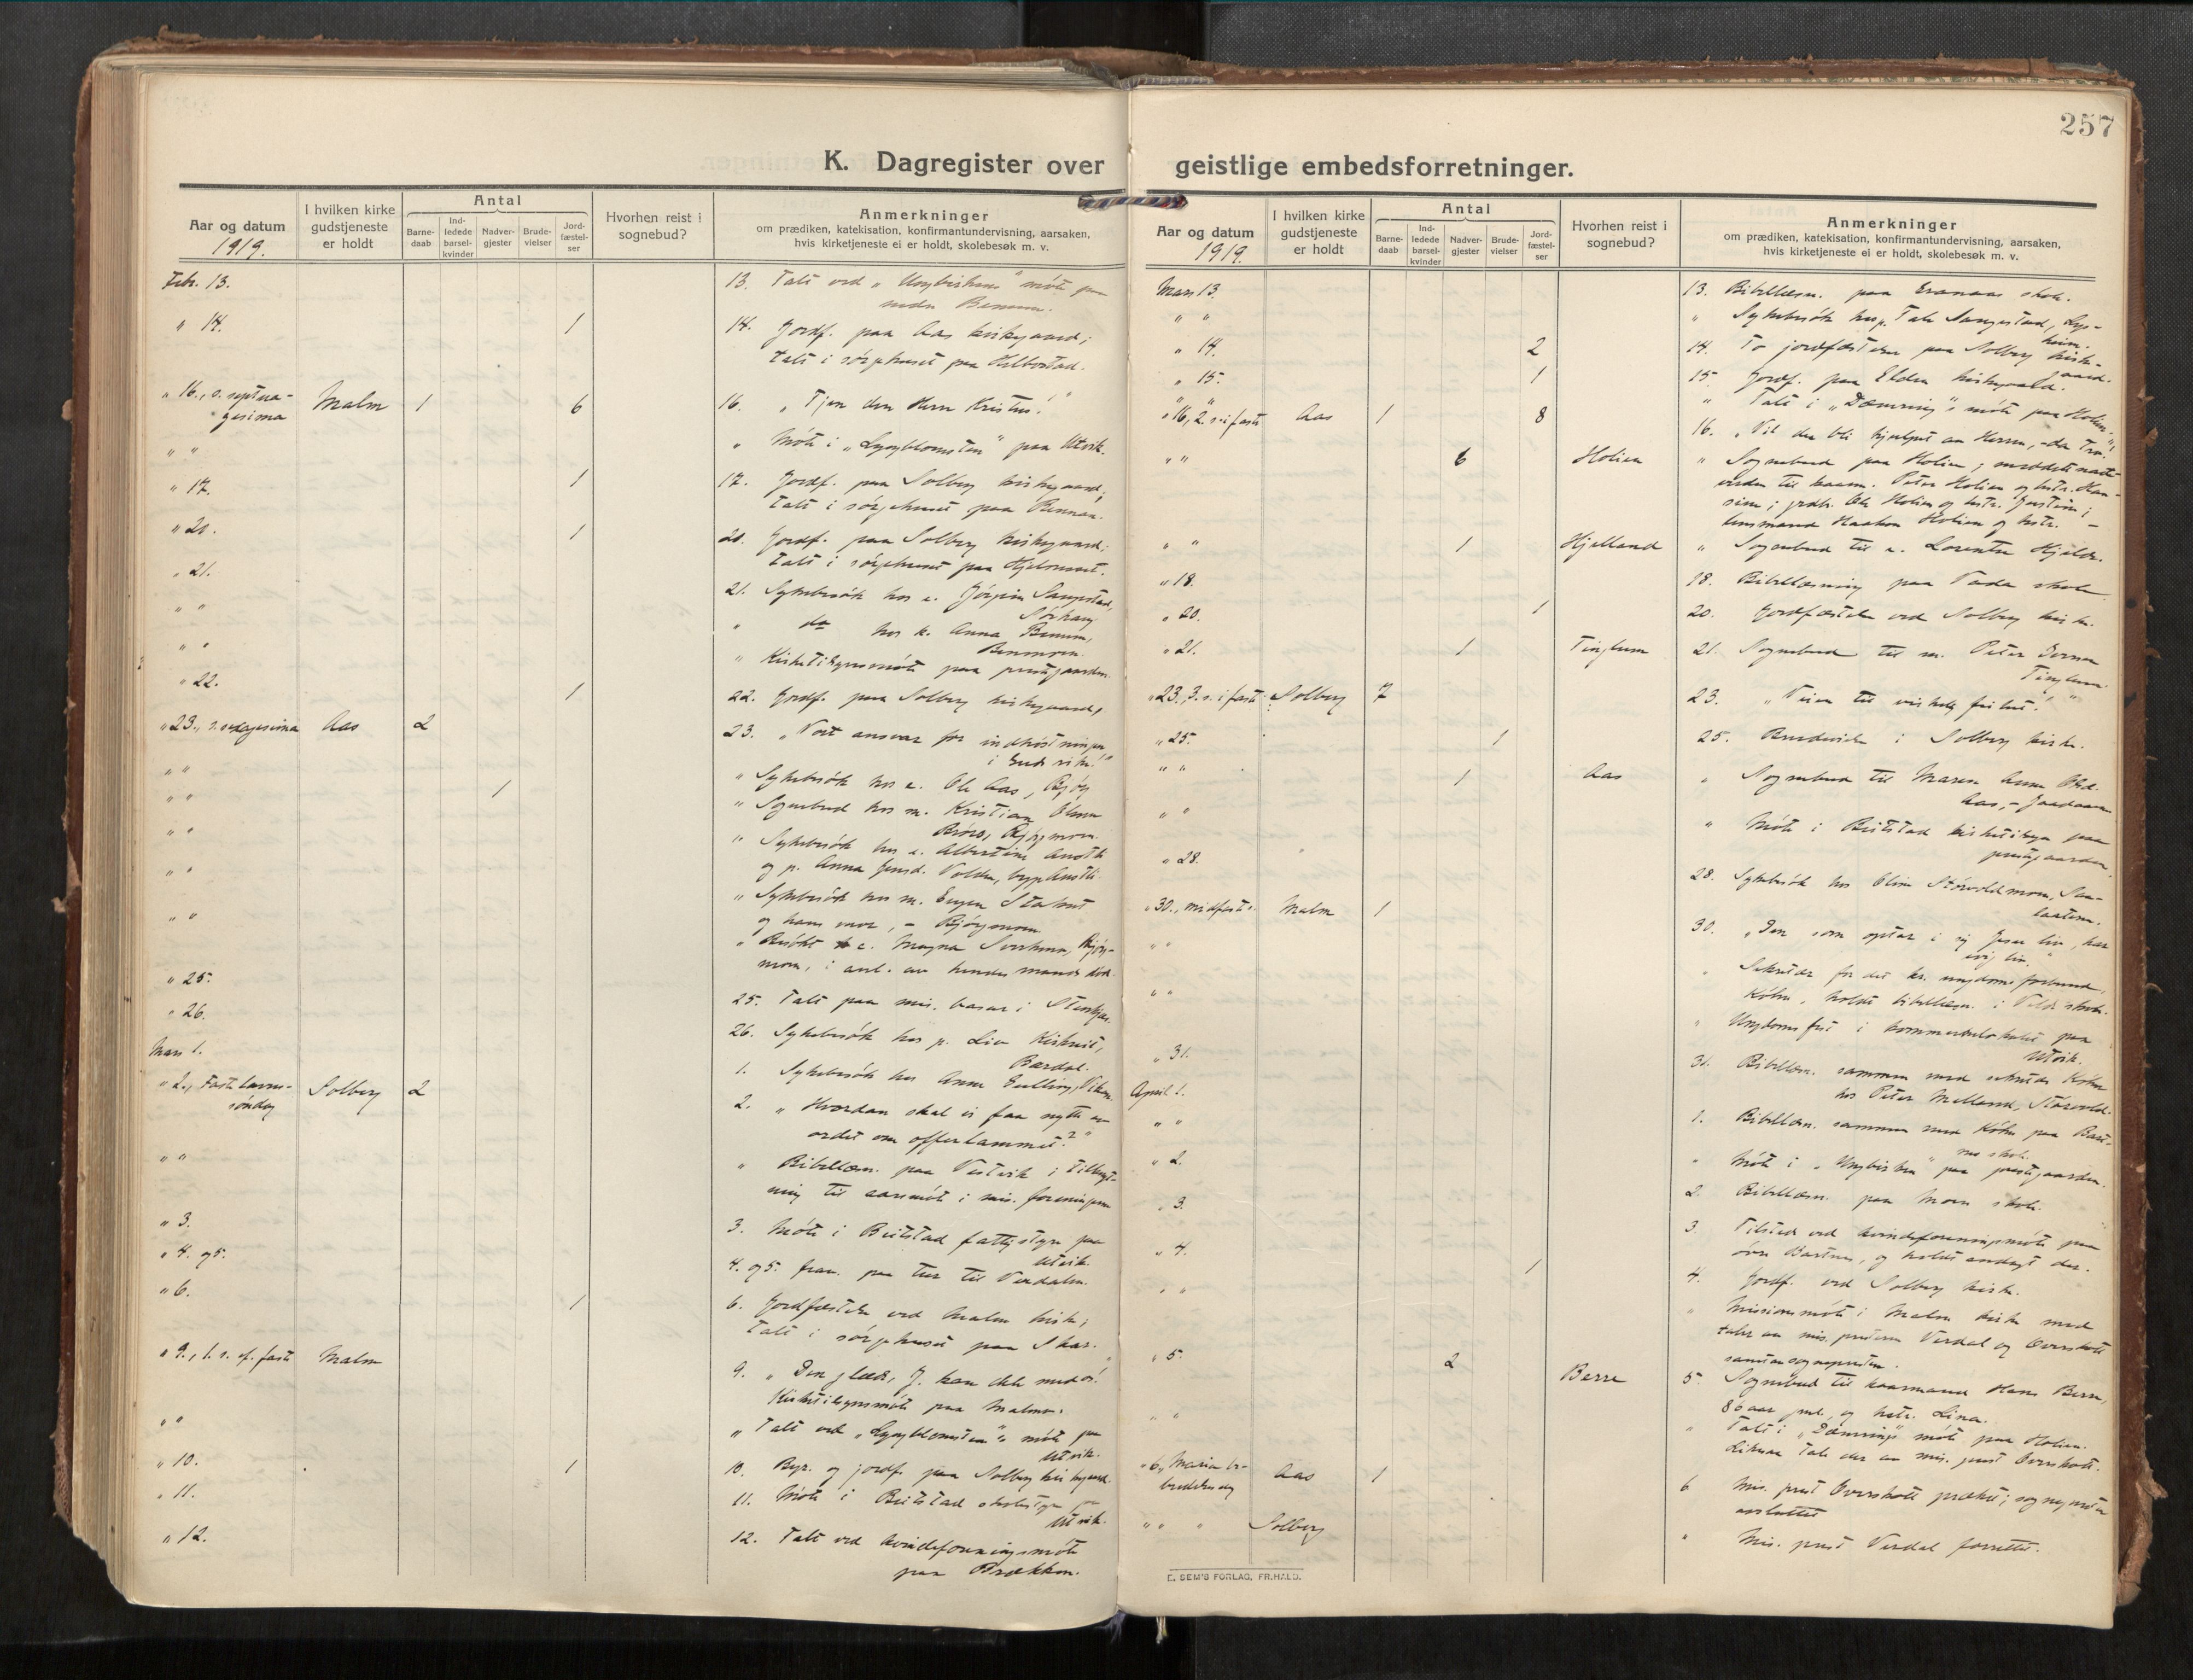 257
K. Dagregister over geistlige embedsforretninger.
Aar og datum
1919.
I hvilken kirke gudstjeneste er holdt
Antal
Barnedaab
Indledede barselkvinder
Nadvergjester
Brudevielser
Jordfæstelser
Hvorhen reist i sognebud?
Anmerkninger
om prædiken, katekisation, konfirmantundervisning, aarsaken,
hvis kirketjeneste ei er holdt, skolebesøk m. v.
Febr. 13.
13. Talt ved "Ungbirken"s møte paa
nedre Benum.
" 14. 1
14. Jordf. paa Aas kirkegaard;
talt i sørgehuset paa Helbostad.
" 16., s. septua-
gesima Malm 1 6
16. "Tjen den Herre Kristus!"
" "
" Møte i "Lyngblomsten" paa Utvik.
" 17. 1
17. Jordf. paa Solberg kirkegaard;
talt i sørgehuset paa Rennan.
" 20. 1
20. Jordf. paa Solberg kirkegaard;
talt i sørgehuset paa
" 21.
21. Sykebesøk hos e.
" "
" do hos k. Anna Benum,
Benumson.
" "
" Kirketilsynsmøte paa prestgaarden.
" 22. 1
22. Jordf. paa Solberg kirkegaard,
" 23., s. sexagesima Aas 2
23. "Vort ansvar for indhøstningen
i Guds rike!"
" "
" Sykebesøk hos e. Ole Aas, Bjørg
" " 1
" Sognebud hos m. Kristian Olsen
" "
" Sykebesøk hos e. Albertine
og p. Anna
" "
" Sykebesøk hos m. Eugen
og hans mor, - Bjørgmoen
" "
" Besøkt e. Magna
i anl. av hendes mands død.
" 25.
25. Talt paa mis. basar i Stenkjær.
" 26.
26. Sykebesøk hos p.
Bardal.
Mars 1.
1. Sykebesøk hos Anne
" 2., Fastelavns-
søndag Solberg 2
2. "Hvordan skal vi faa nytte av
ordet om offerlammet?"
" "
" Bibellæsn. paa Vestvik i tilknyt-
ning til aarsmøte i mis. foreningen
" 3.
3. Møte i Beitstad fattigstyre paa
Utvik.
" 4. og 5.
4. og 5. frav. paa tur til Verdalen.
" 6. 1
6. Jordfæstelse ved Malm kirke;
talt i sørgehuset paa Skar.
" 9., 1. s. i faste Malm
9. "Den glæde, J. kan ikke
Kirketilsynsmøte paa Malmo.
" "
" Talt ved "Lyngblomsten"s møte paa
Utvik.
" 10. 1
10. Byr. og jordf. paa Solberg kirkegaard.
" 11.
11. Møte i Beitstad skolestyre paa
Utvik.
" 12.
12. Talt ved kvindeforeningsmøte
paa Brækken.
Aar og datum
1919.
I hvilken kirke gudstjeneste er holdt
Antal
Barnedaab
Indledede barselkvinder
Nadvergjester
Brudevielser
Jordfæstelser
Hvorhen reist i sognebud?
Anmerkninger
om prædiken, katekisation, konfirmantundervisning, aarsaken,
hvis kirketjeneste ei er holdt, skolebesøk m. v.
Mars 13.
13. Bibellæsn. paa Granaas skole.
" "
" Sykebesøk hos
" 14. 2
14. To jordfæstelser paa Solberg kirke-
gaard.
" 15. 1
15. Jordf. paa Elden kirkegaard.
" "
" Talt i "Dæmring"s møte paa Holien.
" 16., 2. s. i faste Aas 1 8
16. "Vil du bli hjulpet av Herren, - da tro!"
" " 6 Holien
" Sognebud paa Holien; meddelt natt-
verden til kaarm. Peter Holien og hstr. Han-
sine; grdbr. Ole Holien og hstr. Justine;
lensmand Haakon Holien og hstr. -
" " 1 Hjelland
" Sognebud til e. Lorentse
" 18.
18. Bibellæsning paa Vada skole
" 20. 1
20. Jordfæstelse ved Solberg kirke.
" 21. 1 Tinglum
21. Sognebud til m. Peter
Tinglum
" 23., 3. s. i faste Solberg 7
23. "Veien til virkelig frihet."
" 25. 1
25. Brudevielse i Solberg kirke.
" " 1 Aas
" Sognebud til Maren Anna
" "
" Møte i Beitstad kirketilsyn paa
prestgaarden
" 28.
28. Sykebesøk hos Oline
" 30., midfaste s. Malm 1
30. "Den som optar i sig Jesu liv, har
evig liv."
" "
" Sekretær for det kr. ungdomsforbund,
Køhn, holdt bibellæsn. i skole.
" "
" Ungdomsfest i kommunelokalet paa
Utvik.
" 31.
31. Bibellæsn. sammen med sekretær Køhn
hos Peter
April 1.
1. Bibellæsn. sammen med Køhn paa Bart-
nes skole.
" "
" Møte i "Ungbirken" paa prestgaarden.
" 2.
2. Bibellæsn. paa Moen skole.
" 3.
3. Tilsted ved kvindeforeningsmøte paa
øvre Bartnes, og holdt andagt der.
" 4. 1
4. Jordf. ved Solberg kirke.
" "
" Missionsmøte i Malm kirke med
taler av mis. presterne Verdal og Oversholt
samt av sognepresten.
" 5. 2 Berre
5. Sognebud til kaarmand Hans Berre,
86 aar gml., og hstr. Lina.
" "
" Talt i "Dæmring"s møte paa Holien.
Likesaa tale der av mis. prest Oversholt.
" 6., Maria be-
budelsesdag Aas 1
6. Mis. prest Oversholt præket; sognepresten
avsluttet
" " " Solberg
" Mis. prest Verdal forrettet.
E. SEM'S FORLAG, FR.HALD.